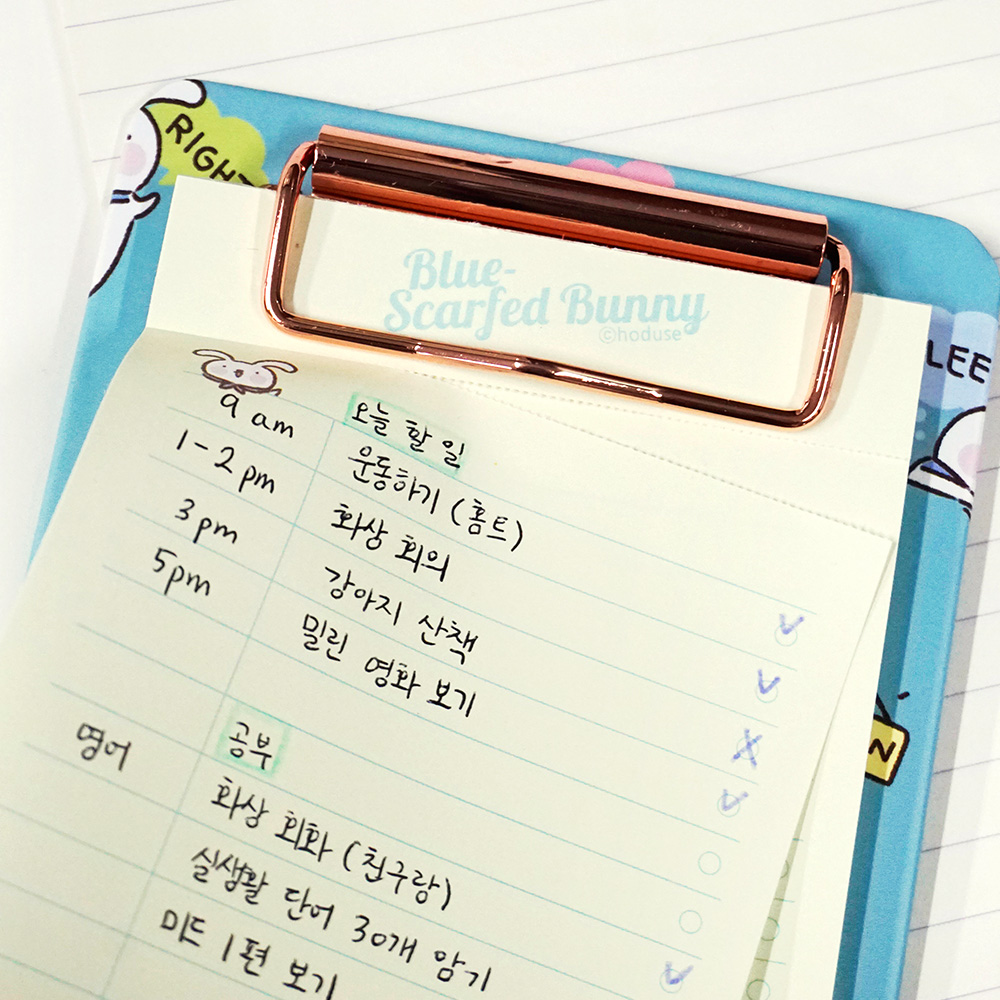 RIGHT
Blue-
Scarfed Bunny
©hoduse
LEE
오늘 할 일
9 am 운동하기 (홈트)
1-2 pm 화상 회의
3 pm 강아지 산책
5pm 밀린 영화 보기
N
공부
영어 화상 회화 (친구랑)
실생활 단어 30개 암기
미드 1편 보기